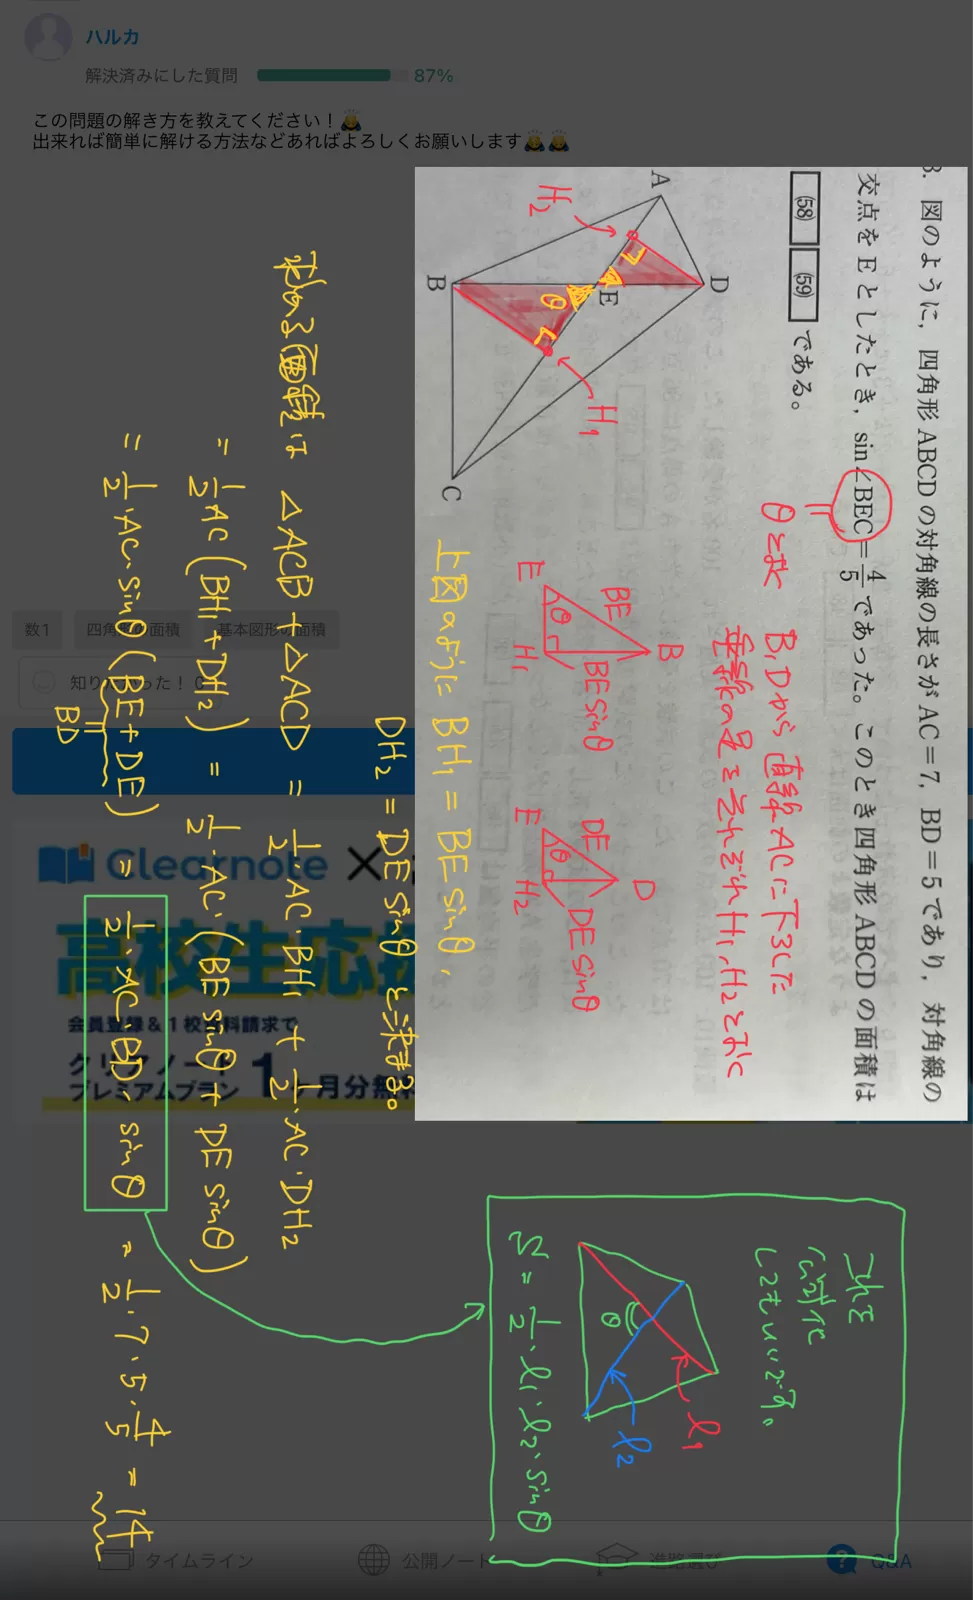 ハルカ
解決済みにした質問 87%
この問題の解き方を教えてください！🙇
出来れば簡単に解ける方法などあればよろしくお願いします🙇🙇
3. 図のように，四角形 ABCD の対角線の長さが AC＝7，BD＝5 であり，対角線の
交点を E としたとき，sin∠BEC＝4/5 であった。このとき四角形 ABCD の面積は
(58) (59) である。
A
B
C
D
E
H₂
H₁
θ
θとおく
B,Dから直線ACに下ろした
垂線の足をそれぞれH₁,H₂とおく
E BE B
θ
H₁ BEsinθ
E DE D
θ
H₂ DEsinθ
上図のように BH₁ = BEsinθ,
DH₂ = DEsinθ と求まる。
求める面積は △ACB + △ACD = 1/2 AC・BH₁ + 1/2・AC・DH₂
= 1/2 AC (BH₁ + DH₂) = 1/2・AC・(BEsinθ + DEsinθ)
= 1/2・AC・sinθ (BE + DE) = 1/2・AC・BD・sinθ = 1/2・7・5・4/5 = 14
BD
これを
してもいいです。
θ
l₁
l₂
S = 1/2・l₁・l₂・sinθ
数1
四角形の面積
基本図形の面積
知りたかった！ 0
Clearnote ×
高校生応援
会員登録＆1校資料請求で
クリアノート
プレミアムプラン
1ヶ月分無料
タイムライン
公開ノート
進路選び
?
Q&A